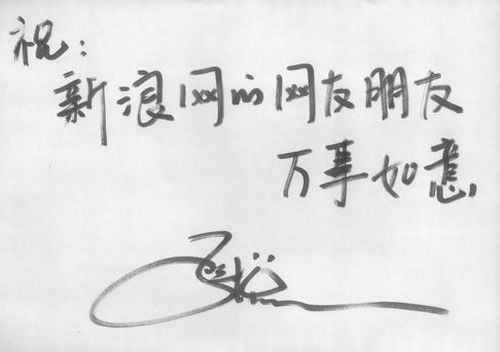 祝：
新浪网的网友朋友
万事如意